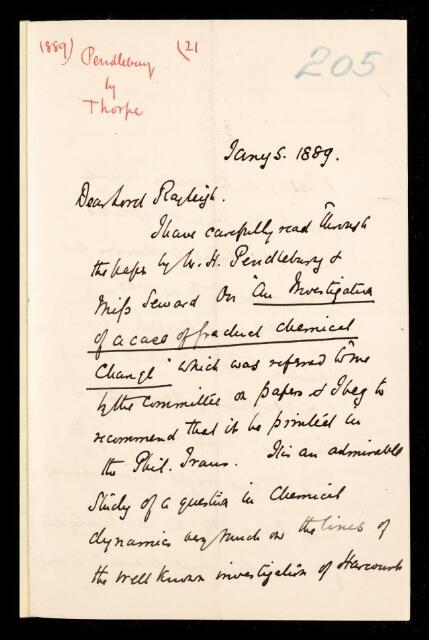 1889) Pendlebury (21
by
Thorpe
205
Jany 5. 1889.
Dear Lord Rayleigh.
I have carefully read through
the paper by W. H. Pendlebury &
Miss Seward On "An Investigation
of a case of gradual chemical
Change" which was referred to me
by the Committee on papers & I beg to
recommend that it be printed in
the Phil. Trans. It is an admirable
study of a question in Chemical
dynamics very much on the lines of
the well known investigation of Harcourt